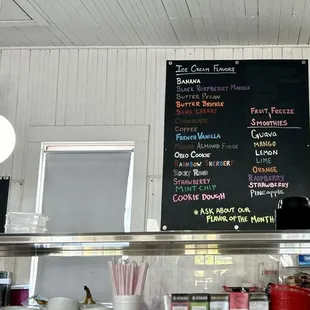 Ice Cream Flavors
Banana
Black Raspberry Marble
Butter Pecan
Butter Brickle
Bing Cherry
Chocolate
Coffee
French Vanilla
Mocha Almond Fudge
Oreo Cookie
Rainbow Sherbert
Rocky Road
Strawberry
Mint Chip
Cookie Dough
* Ask about our
Flavor of the Month
Fruit Freeze
&
Smoothies
Guava
Mango
Lemon
Lime
Orange
Raspberry
Strawberry
Pineapple